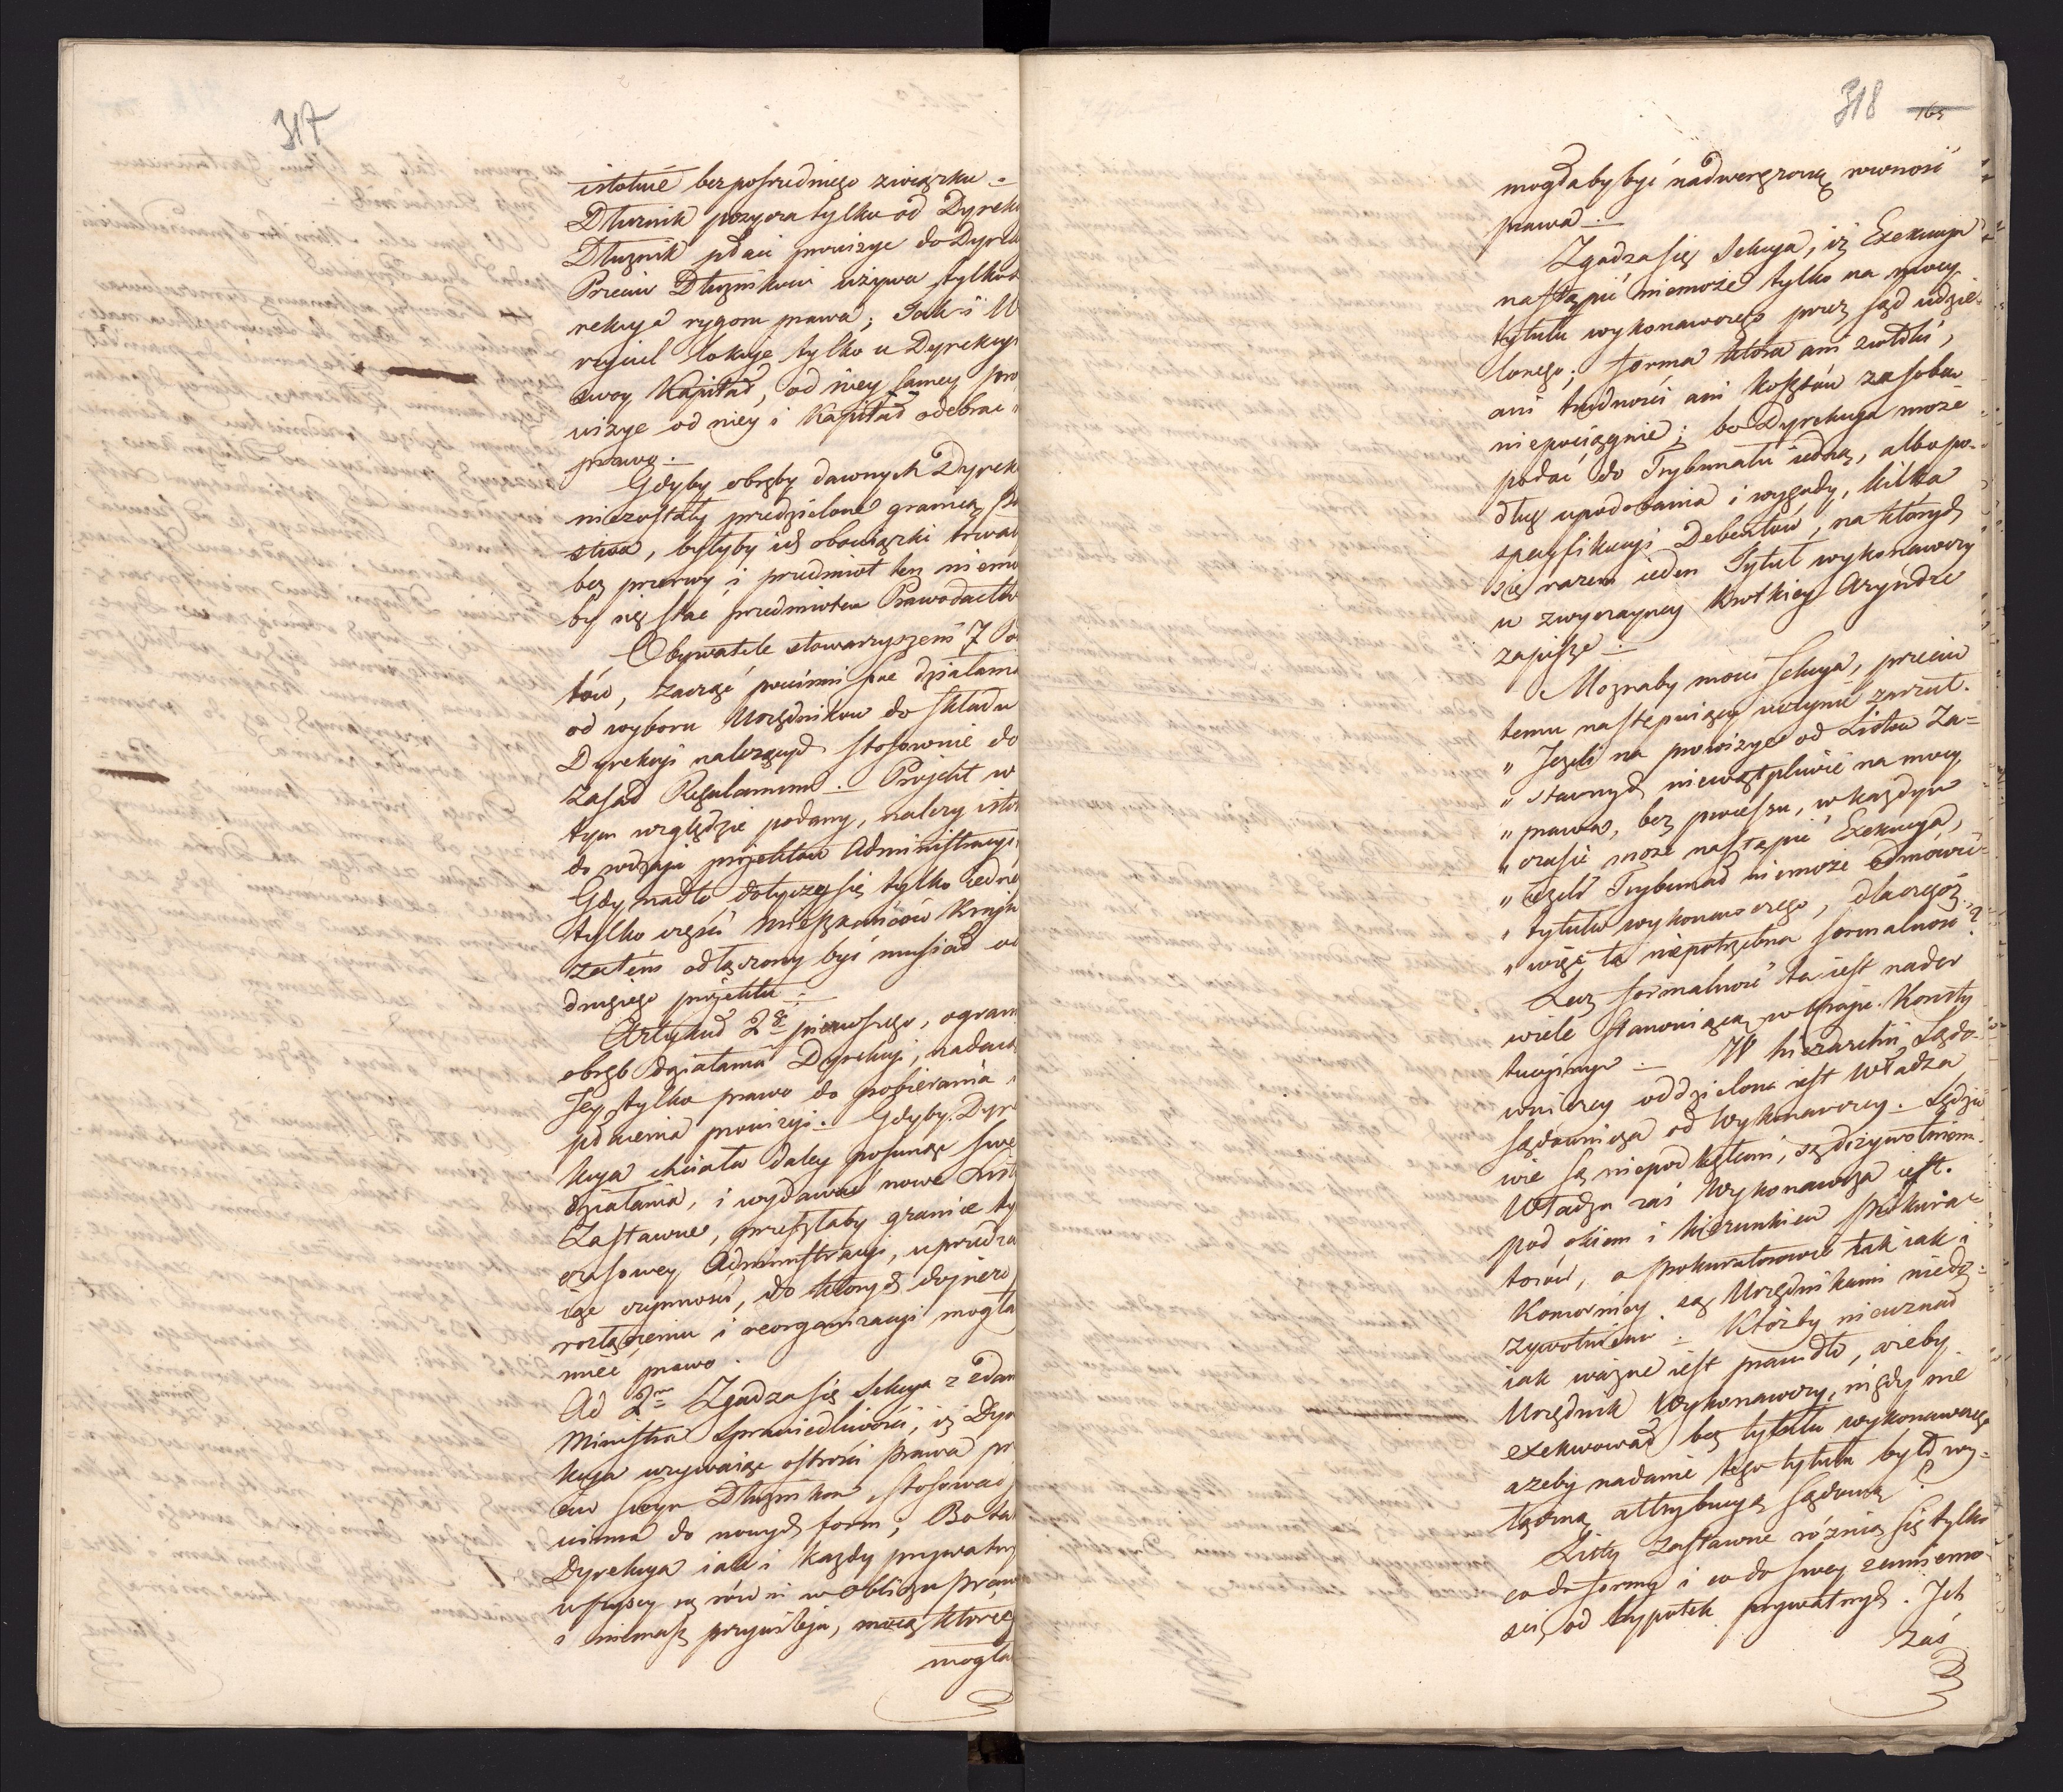 317
istotnie bezpośredniego związku –
Dłużnik pożycza tylko od Dyrek
Dłużnik płaci prowizye do Dyrek
Przeciw Dłużnikowi używa tylko
rekcya rygoru prawa; Jak i W
rzyciel lokuje tylko u Dyrekcyi
swoy Kapitał, od niey samey pro
wizye od niey i Kapitał odebrać
prawo. –
Gdyby obręby dawnych Dyrek
niezostały przedzielone granicą
stwa, byłyby ich obowiązki trwał
bez przerwy i przedmiot ten niemó
by się stać przedmiotem Prawodactw
Obywatele stowarzyszeni 7 Po
tów, zacząć powinni swe działani
od wyboru Urzędników do składu
Dyrekcyi należących stosownie do
zasad Regulaminu. – Projekt w
tym względzie podany, należy isto
do rodzaju projektów Administracyi
Gdy nadto dotyczy się tylko iedne
tylko części Mieszkańców Kraju
zatem odłączony być musiał od
drugiego projektu –
Artykuł 2gi pierwszego, ogran
obręb działania Dyrekcyi, nadaie
Jey tylko prawo do pobierania i
płacenia prowizyi. Gdyby Dyre
kcya chciała daley posunąć swe
działania, i wydawać nowe List
Zastawne, przeszłaby granice ty
czasowey Administracyi, uprzedza
iąc czynności, do których dopiero
rozłączeniu i reorganizacyi mogła
mieć prawo.
Ad 2m Zgadza się Sekcya z Zdan
Ministra Sprawiedliwości, iż Dyre
kcya używaiąc ostrości prawa prze
ciw swym Dłużnikom stosować
winna do nowych form; Bo ta
Dyrekcya iak i każdy prywatny
wszyscy są równi w obliczu praw
i niemasz przywileju, mocą którego
mogła
318 165
mogłaby być nadwerężoną rowność
prawa. –
Zgadza się Sekcya, iż Exekucya
nastąpić niemoże tylko na mocy
tytułu wykonawczego przez Sąd udzie-
lonego; forma która ani zwłoki,
ani trudności ani kosztów za sobą
niepociągnie; bo Dyrekcya może
podać do Trybunału iedną, albo po-
dług upodobania i wygody, kilka
specyfikacyi Debentów, na których
się razem ieden Tytuł wykonawczy
w zwyczayney krotkiey
zapisze. –
Moznaby mowi Sekcya, przeciw
temu następuiący uczynić zarzut.
„ Jeżeli na prowizye od Listów Za-
„ stawnych niewątpliwie na mocy
„ prawa, bez pociesku, w każdym
„ czasie może nastąpić Exekucya,
„ ieżeli Trybunał niemoże odmówić
„ tytułu wykonawczego, dlaczegóż
„ więc ta niepotrzebna formalność?
Lecz formalność ta iest nader
wiele stanowiącą w kraju Konsty
tucyjnym. – W hierarchii Sądo-
wniczey oddzielona iest Władza
Sądownicza od Wykonawczey. – Sędzio
wie są niepodległemi, są dożywotniemi.
Władza zaś Wykonawcza iest.
pod okiem i kierunkiem Prokura-
torów, a Prokuratorowie tak iak i
Komornicy są Urzędnikami niedo-
żywotniemi. – Któżby nieuznał
iak ważne iest prawidło, ażeby
Urzędnik Wykonawczy, nigdy nie
exekwował bez tytułu wykonawczego
ażeby nadanie tego tytułu było wy-
łączną attrybucyą Sądową?
Listy Zastawne różnią się tylko
co do formy i co do swey zamienno-
ści, od hypotek prywatnych. Jch
zaś